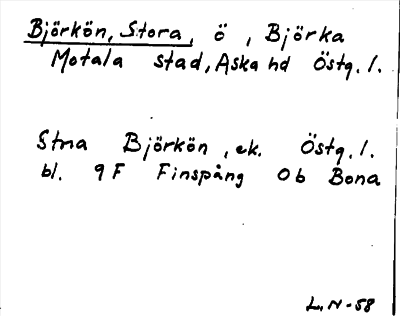 Björkön, Stora, ö, Björka
Motala stad, Aska hd Östg. l.
Stora Björkön, ek. Östg. l.
bl. 9F Finspång 0b Bona
L.N-58